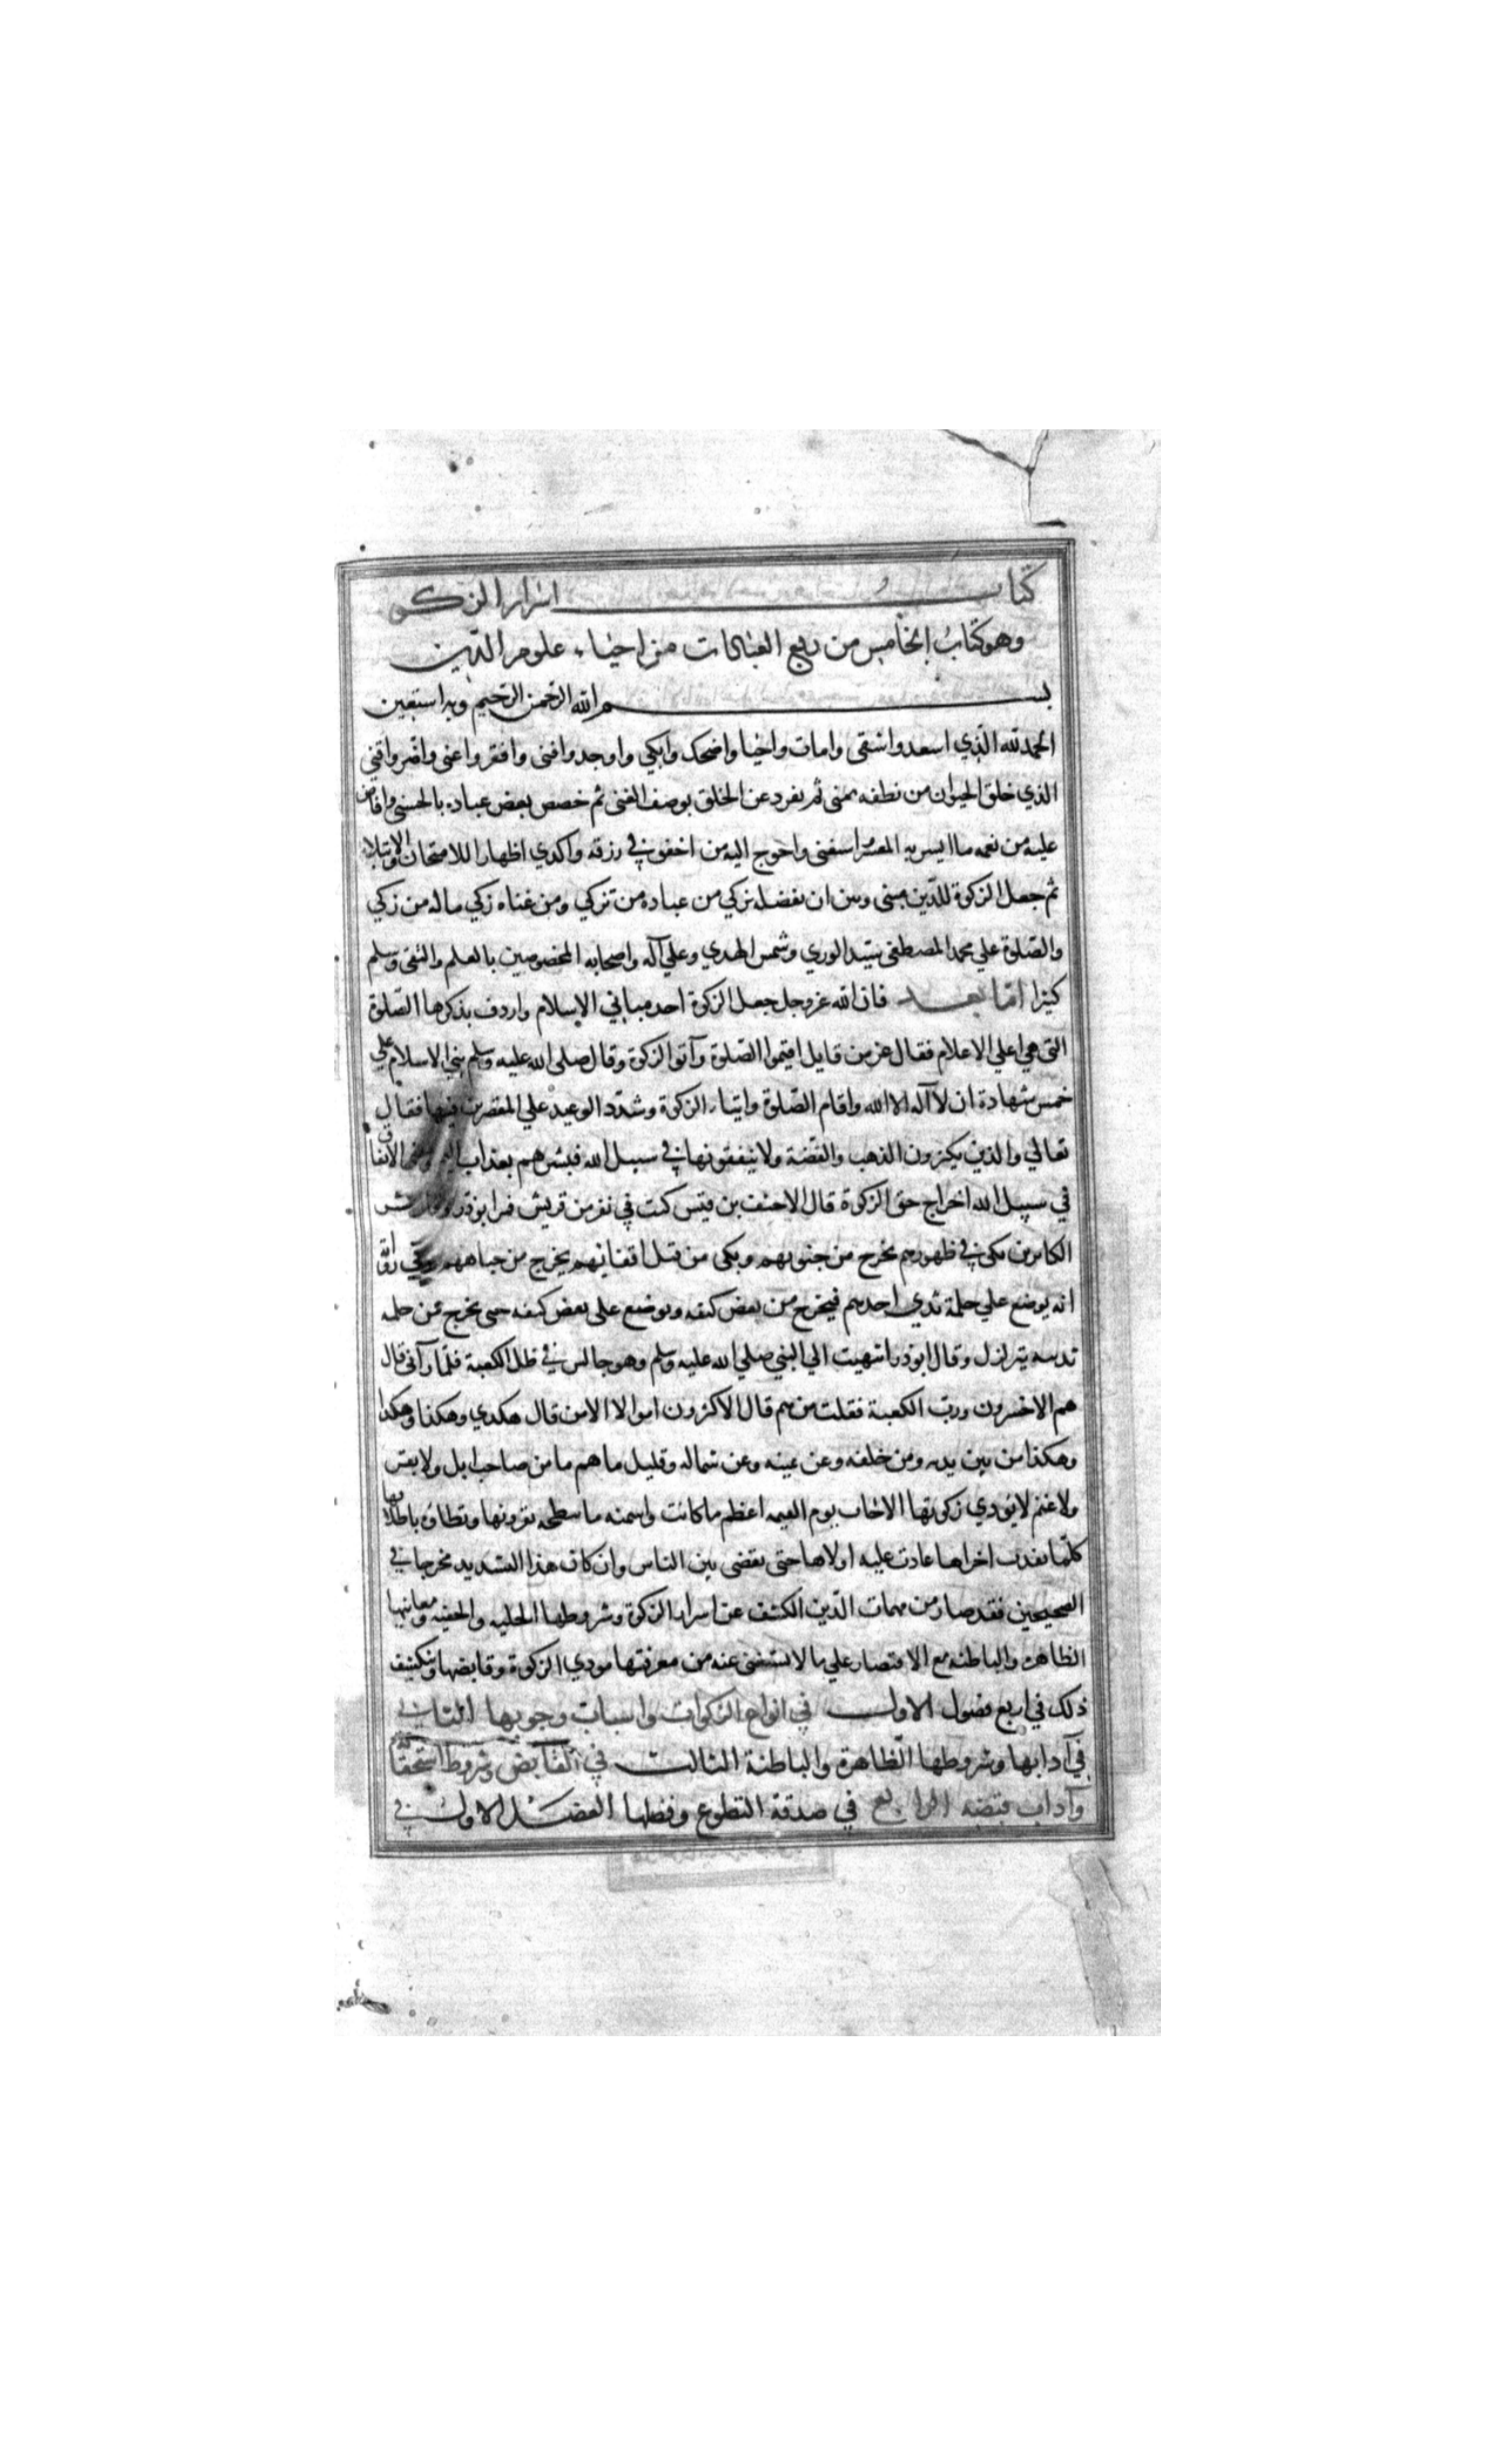 كتاب اسرار الزكوة
وهو كتاب الخامس من ربع العبادات من احياء علوم الدين
بسم الله الرحمن الرحيم وبه استعين
الحمد لله الذي اسعد واشقى وامات واحيا واضحك وابكي واوجد وافنى وافقر واغنى واضر واقنى
الذي خلق الحيوان من نطفه تمنى ثم تفرد عن الخلق بوصف الغنى ثم خصص بعض عباده بالحسنى وافاض
عليه من نعمه ما ايسر به المعسر استغنى واحوج اليه من اخفق في رزقه واكدي اظهارا للامتحان والابتلاء
ثم جعل الزكوة للدين مبنى وبين ان بفضله تزكي من عباده من تزكي ومن غناه زكي ماله من زكي
والصلوة علي محمد المصطفى سيد الوري وشمس الهدي وعلي آله واصحابه المخصوصين بالعلم والتقى وسلم
كثيرا اما بعد فان الله عز وجل جعل الزكوة احد مباني الاسلام واردف بذكرها الصلوة
التي هي اعلي الاعلام فقال عز من قايل اقيموا الصلوة وآتوا الزكوة وقال صلى الله عليه وسلم بني الاسلام علي
خمس شهادة ان لا آله الا الله واقام الصلوة وايتاء الزكوة وشدد الوعيد علي المقصرين فيها فقال
تعالي والذين يكنزون الذهب والفضة ولا ينفقونها في سبيل الله فبشرهم بعذاب اليم ومعنى الانفاق
في سبيل الله اخراج حق الزكوة قال الاحنف بن قيس كنت في نفر من قريش فمر ابو ذر وقال بشر
الكانزين بكي في ظهورهم يخرج من جنوبهم وبكى من قبل اقفايهم يخرج من جباههم وفي رواية
انه يوضع علي حلمة ثدي احدهم فيخرج من بعض كتفه ويوضع على بعض كتفه حتى يخرج من حلمه
ثدييه يتزلزل وقال ابو ذر انتهيت الي النبي صلي الله عليه وسلم وهو جالس في ظل الكعبة فلما رآنى قال
هم الاخسرون ورب الكعبة فقلت من هم قال الاكثرون اموالا الا من قال هكدي وهكذا وهكذا
وهكذا من بين يديه ومن خلفه وعن يمينه وعن شماله وقليل ما هم ما من صاحب ابل ولا بقر
ولا غنم لا يؤدي زكوتها الا جات يوم القيمه اعظم ما كانت واسمنه تنطحه بقرونها وتطاؤه باظلافها
كلما نفدت اخراها عادت عليه اولاها حتى يقضى بين الناس وان كان هذا التشديد مخرجا في
الصحيحين فقد صار من مهمات الدين الكشف عن اسرار الزكوة وشروطها الجليه والخفيه ومعانيها
الظاهره والباطنه مع الاقتصار علي ما لا يستغنى عنه من معرفتها مودي الزكوة وقابضها وتكشف
ذلك في اربع فصول الاول في انواع الزكوات واسباب وجوبها الثاني
في آدابها وشروطها الظاهرة والباطنة الثالث في القابض وشروط استحقاقه
وآداب قبضه الرابع في صدقة التطوع وفضلها الفصل الاول في